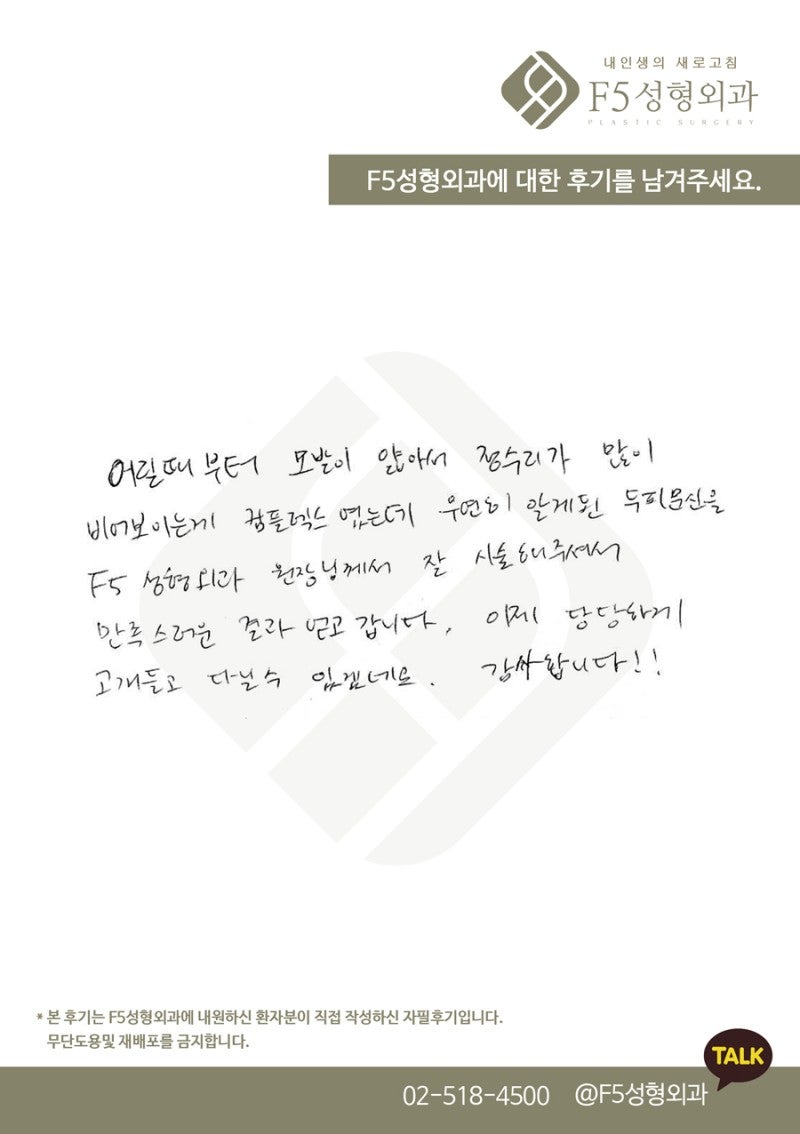 내인생의 새로고침
F5성형외과
PLASTIC SURGERY
F5성형외과에 대한 후기를 남겨주세요.
어릴때부터 모발이 얇아서 정수리가 많이
비어보이는게 컴플렉스였는데 우연히 알게된 두피문신을
F5 성형외과 원장님께서 잘 시술해주셔서
만족스러운 결과 얻고 갑니다. 이제 당당하게
고개들고 다닐수 있겠네요. 감사합니다!!
* 본 후기는 F5성형외과에 내원하신 환자분이 직접 작성하신 자필후기입니다.
무단도용및 재배포를 금지합니다.
TALK
02-518-4500 @F5성형외과